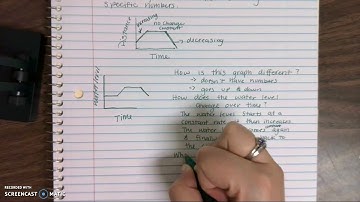 Specific numbers.
Distance
increasing
no change
constant
decreasing
Time
How is this graph different?
→ doesn't have numbers
→ goes up & down
Water level
How does the water level
change over time?
Time
The water level starts at a
constant rate
increases
The water
again
& finally
to
the
Wh
RECORDED WITH
SCREENCAST MATIC